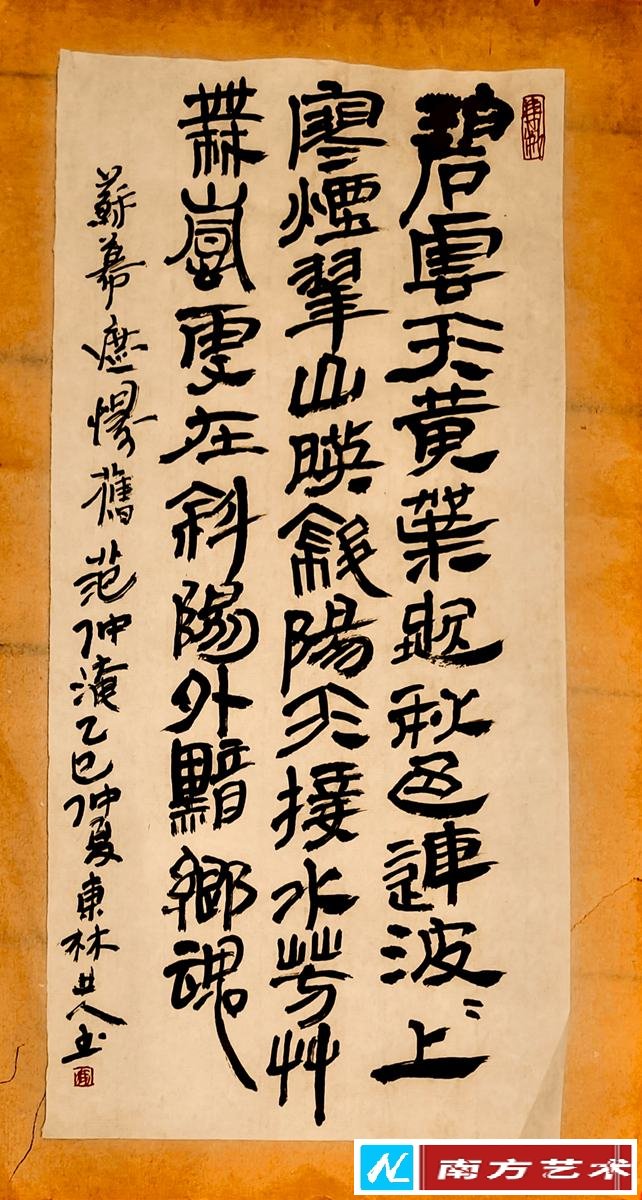 碧雲天黃葉秋色連波〻上
煙翠山暎斜陽天接水芳艸
無更在斜陽外黯鄉魂
蘇幕遮懷舊范仲淹乙巳仲夏東林人書
南方艺术